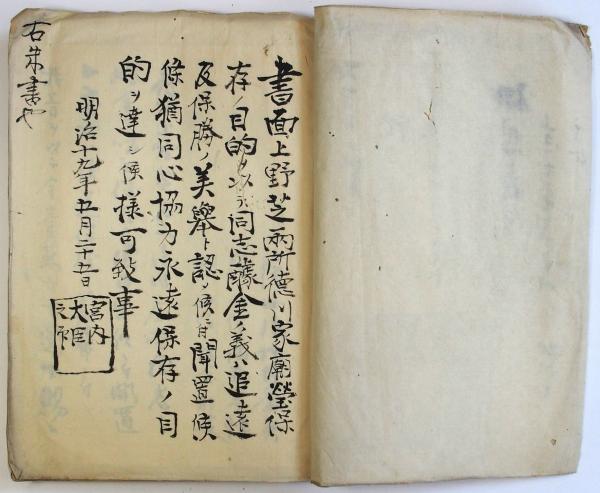 書面上野芝両所徳川家廟瑩保
存ノ目的ヲ以テ同志醵金ノ義ハ追遠
及保勝ノ美舉ト認メ候ニ付聞置候
條猶同心協力永遠保存ノ目
的ヲ達シ候様可致事
明治十九年五月二十五日
宮内
大臣
之印
右朱書也